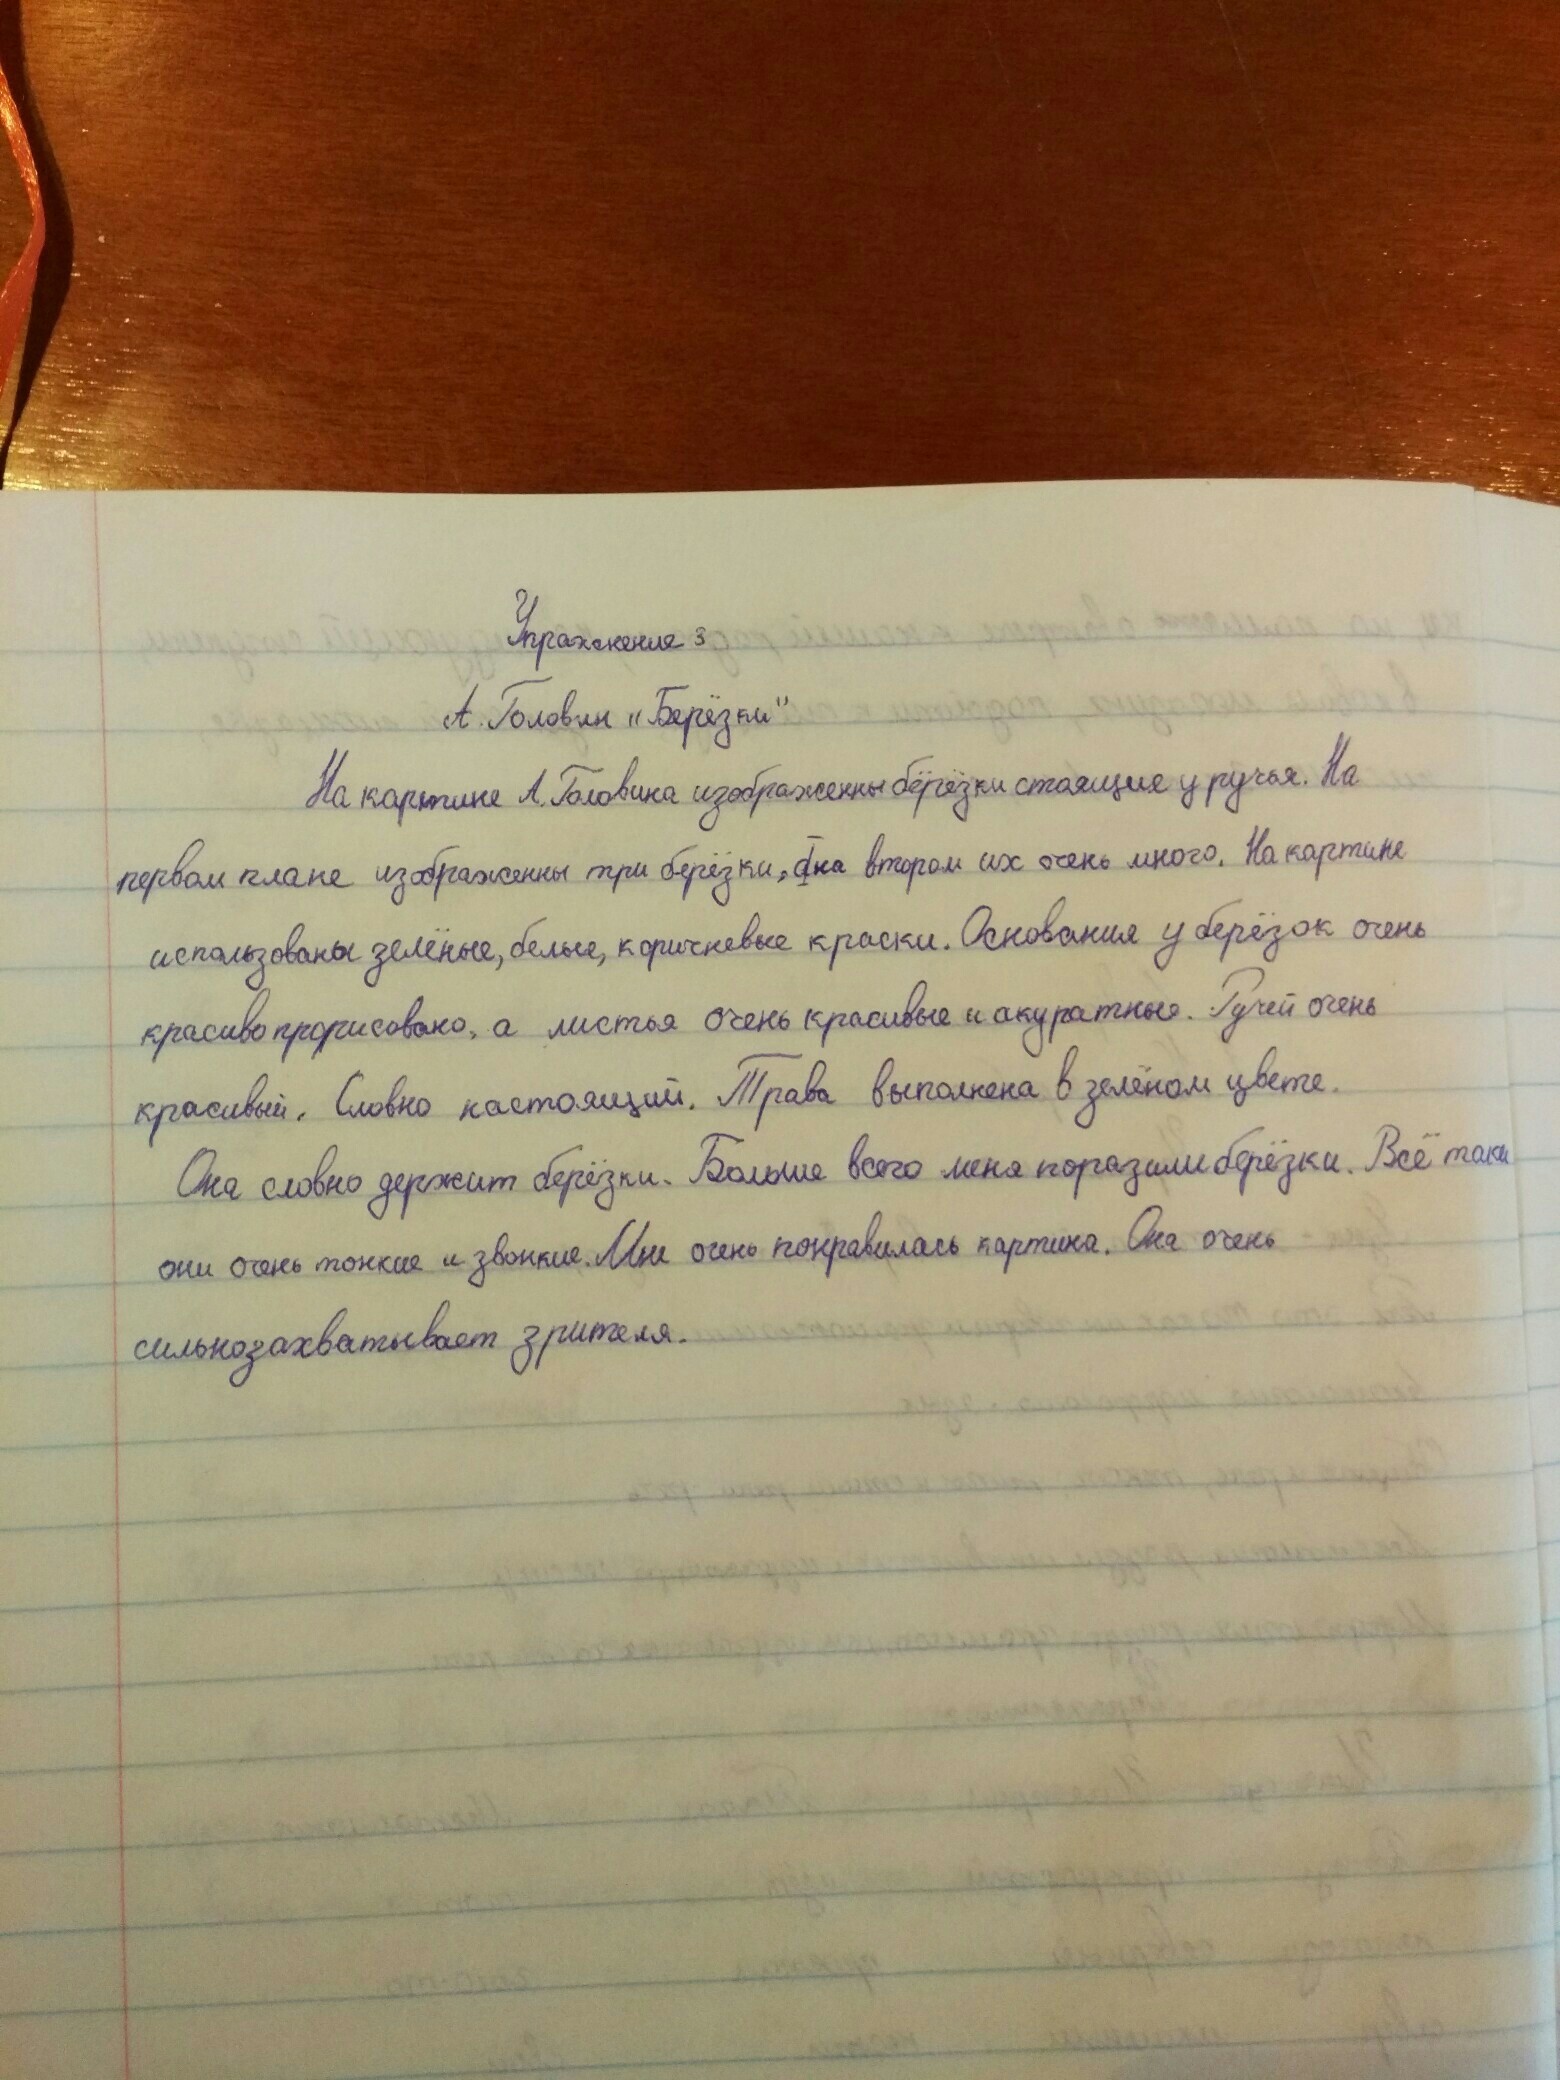 Упражнение 3
А. Головин "Берёзки"
На картине А. Головина изображенны берёзки стоящие у ручья. На
первом плане изображенны три берёзки, а на втором их очень много. На картине
использованы зелёные, белые, коричневые краски. Основания у берёзок очень
красиво прорисовано, а листья очень красивые и акуратные. Ручей очень
красивый. Словно настоящий. Трава выполнена в зелёном цвете.
Она словно держит берёзки. Больше всего меня поразили берёзки. Всё таки
они очень тонкие и звонкие. Мне очень понравилась картина. Она очень
сильно захватывает зрителя.